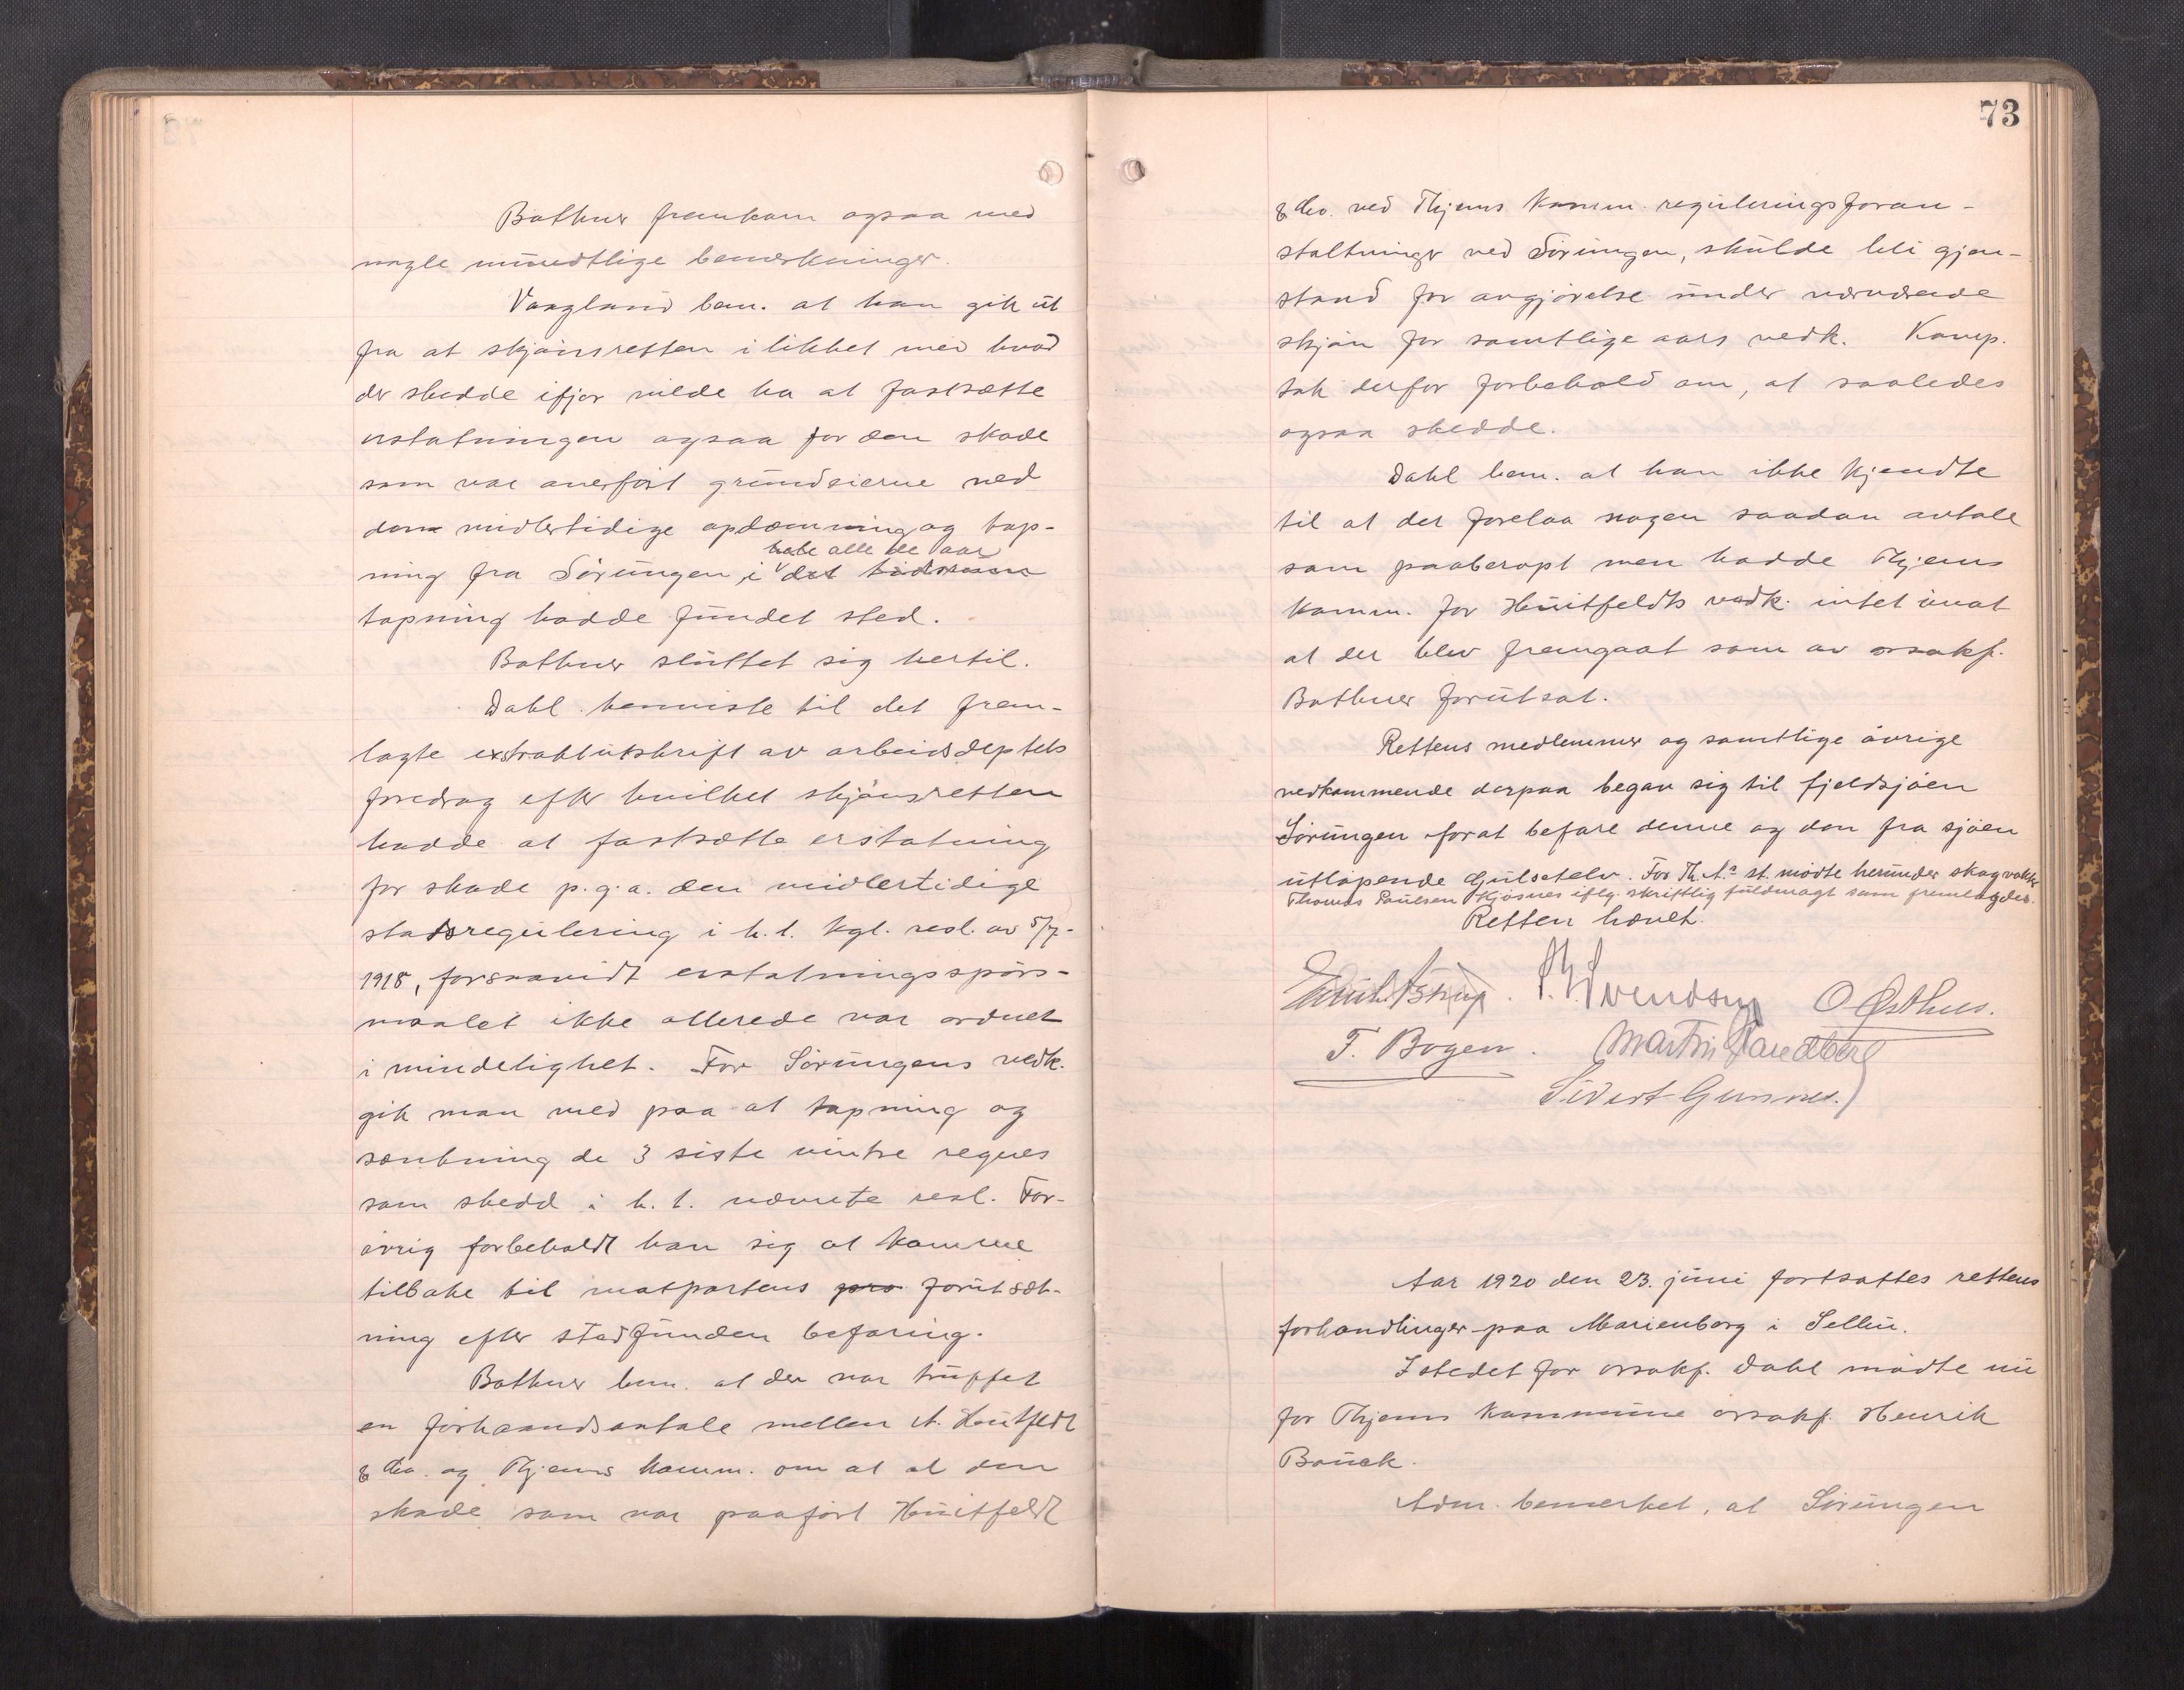 Bothner fremkom ogsaa med
nogle mundtlige bemerkninger.
Vaagland bem. at han gik ut
fra at skjønsretten i likhet med hvad
der skedde ifjor vilde ha at fastsætte
erstatningen ogsaa for den skade
som var anerført grundeierne ved
den midlertidige opdæmning og tap-
hele alle de aar
ning fra Sørungen i det tidsrum
tapning hadde fundet sted.
Bothner sluttet sig hertil.
Dahl henviste til det frem-
lagte extraktutskrift av arbeidsdeptets
foredrag efter hvilket skjønsretten
hadde at fastsætte erstatning
for skade p.g.a. den midlertidige
statsregulering i h.t. kgl. resl. av 5/7-
1918, forsaavidt erstatningsspørs-
maalet ikke allerede var ordnet
i mindelighet. For Sørungens vedk.
gik man med paa at tapning og
sænkning de 3 siste vintre regnes
som skedd i h.t. nævnte resl. For-
øvrig forbeholdt han sig at komme
tilbake til motpartens foro forutsæt-
ning efter stedfunden befaring.
Bothner bem. at der var truffet
en forhaandsavtale mellem A. Huitfeldt
& Co. og Thjems komm. om at al den
skade som var paaført Huitfeldt
73
& Co. ved Thjems Komm. reguleringsforan-
staltninger ved Sørungen, skulde bli gjen-
stand for avgjørelse under nærværende
skjøn for samtlige aars vedk. Komp.
tok derfor forbehold om, at saaledes
ogsaa skedde.
Dahl bem. at han ikke kjendte
til at der forelaa nogen saadan avtale
som paaberopt men hadde Thjems
komm. for Huitfeldts vedk. intet imot
at der blev fremgaat som av orsakf.
Bothner forutsat.
Rettens medlemmer og samtlige øvrige
vedkommende derpaa begav sig til fjeldsjøen
Sørungen forat befare denne og den fra sjøen
utløpende Gulsetelv. For Th. A.s st. møtte herunder skogvokter
Thomas Paulsen Kjøsnes iflg. skriftlig fuldmagt som fremlagdes.
Retten hævet.
O Østhus.
T. Bogen. Martin Sandberg
Sivert Gunnes.
Aar 1920 den 23. juni fortsattes rettens
forhandlinger paa Marienborg i Selbu.
I stedet for orsakf. Dahl møtte nu
for Thjems kommune orsakf. Henrik
Bauck.
Adm. bemerket, at Sørungen